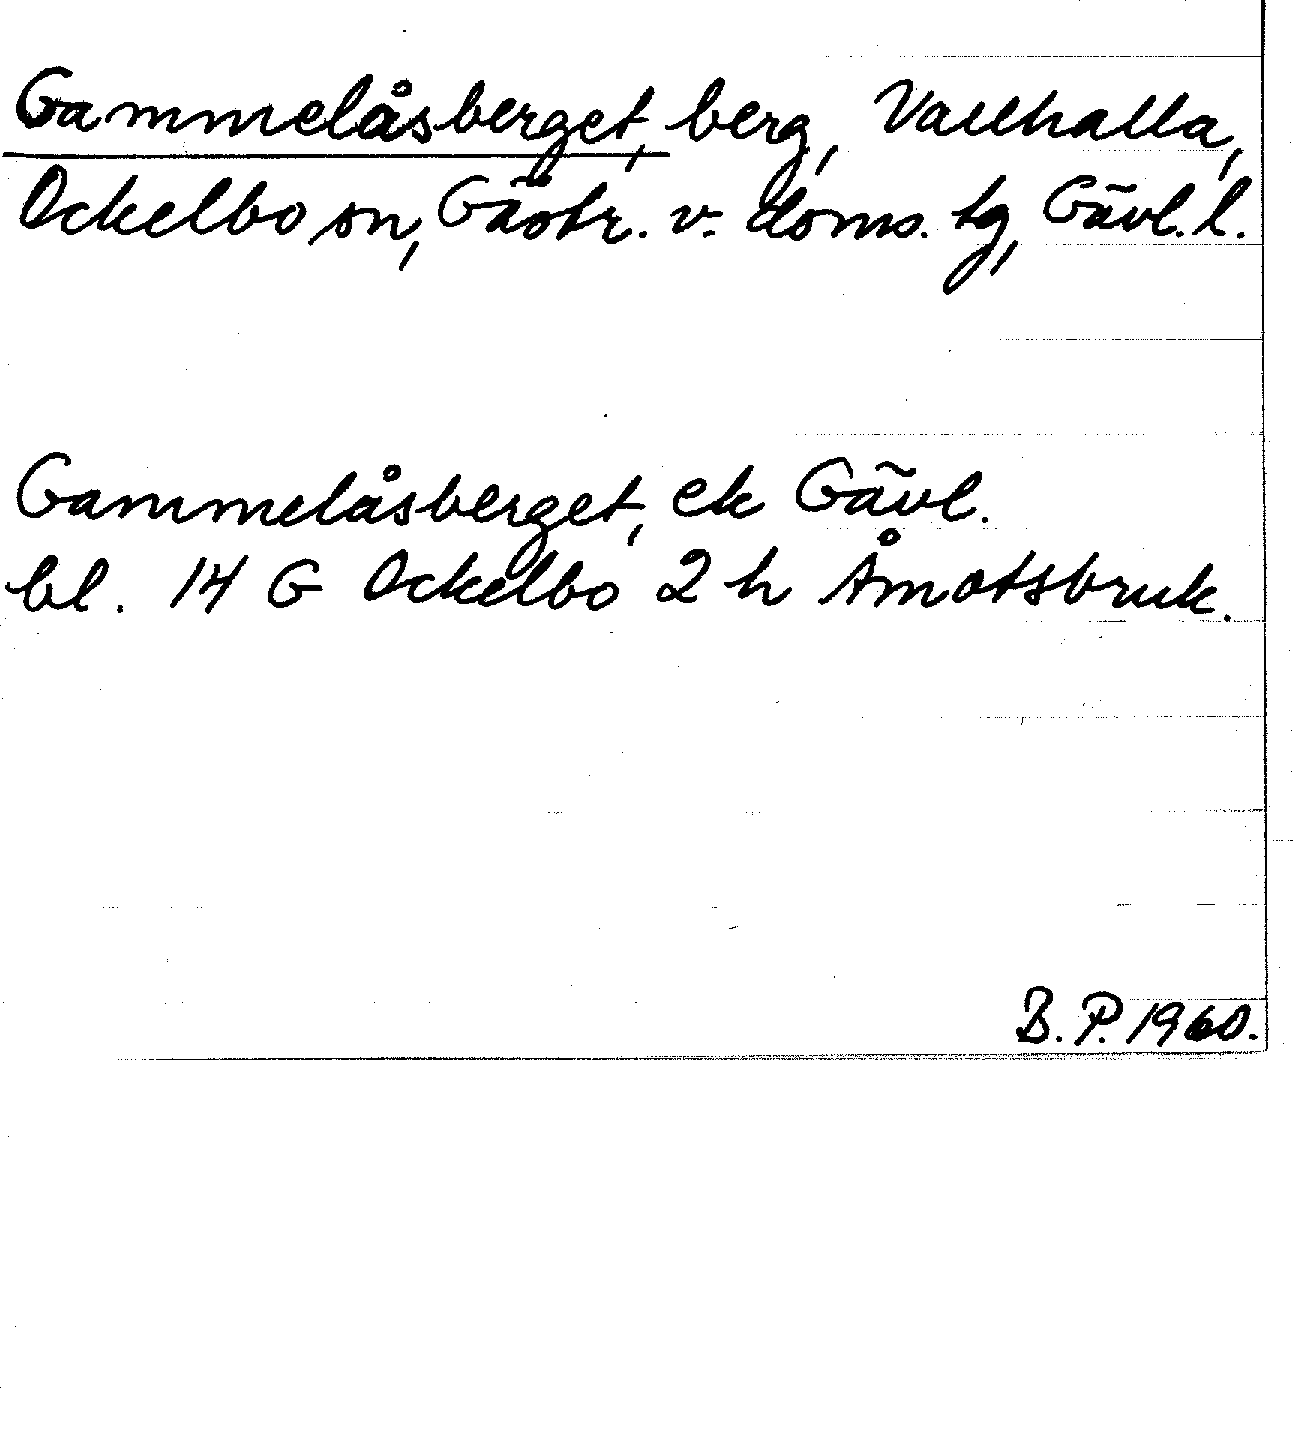 Gammelåsberget, berg, Vallhalla,
Ockelbo sn, Gästr. v. doms. tg, Gävl. l.
Gammelåsberget, ek Gävl.
bl. 14 G Ockelbo 2 h Åmotsbruk.
B. P. 1960.